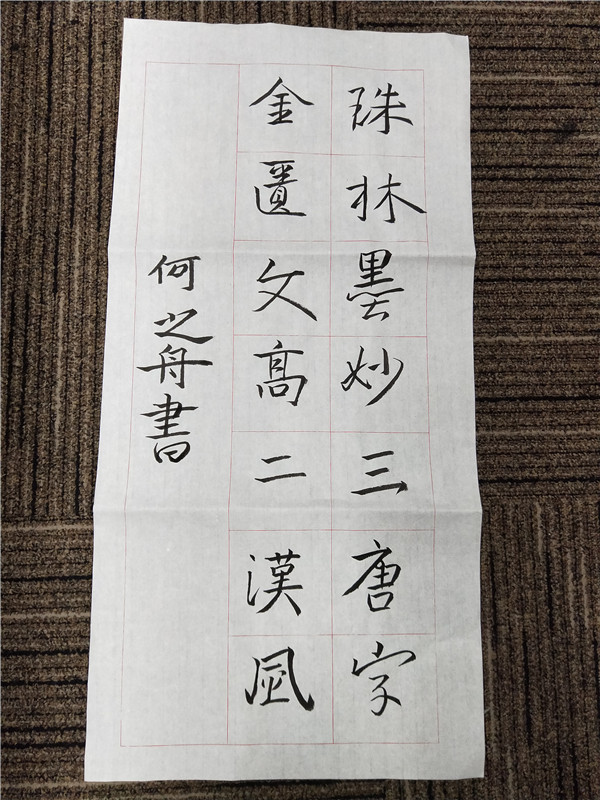 珠林墨妙三唐字
金匱文高二漢風
何之舟書